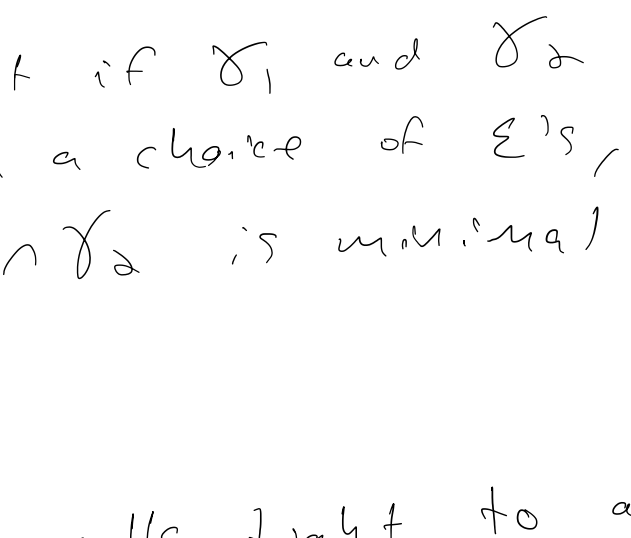 t if γ₁ and γ₂
a choice of ε's,
∩ γ₂ is minimal
to a